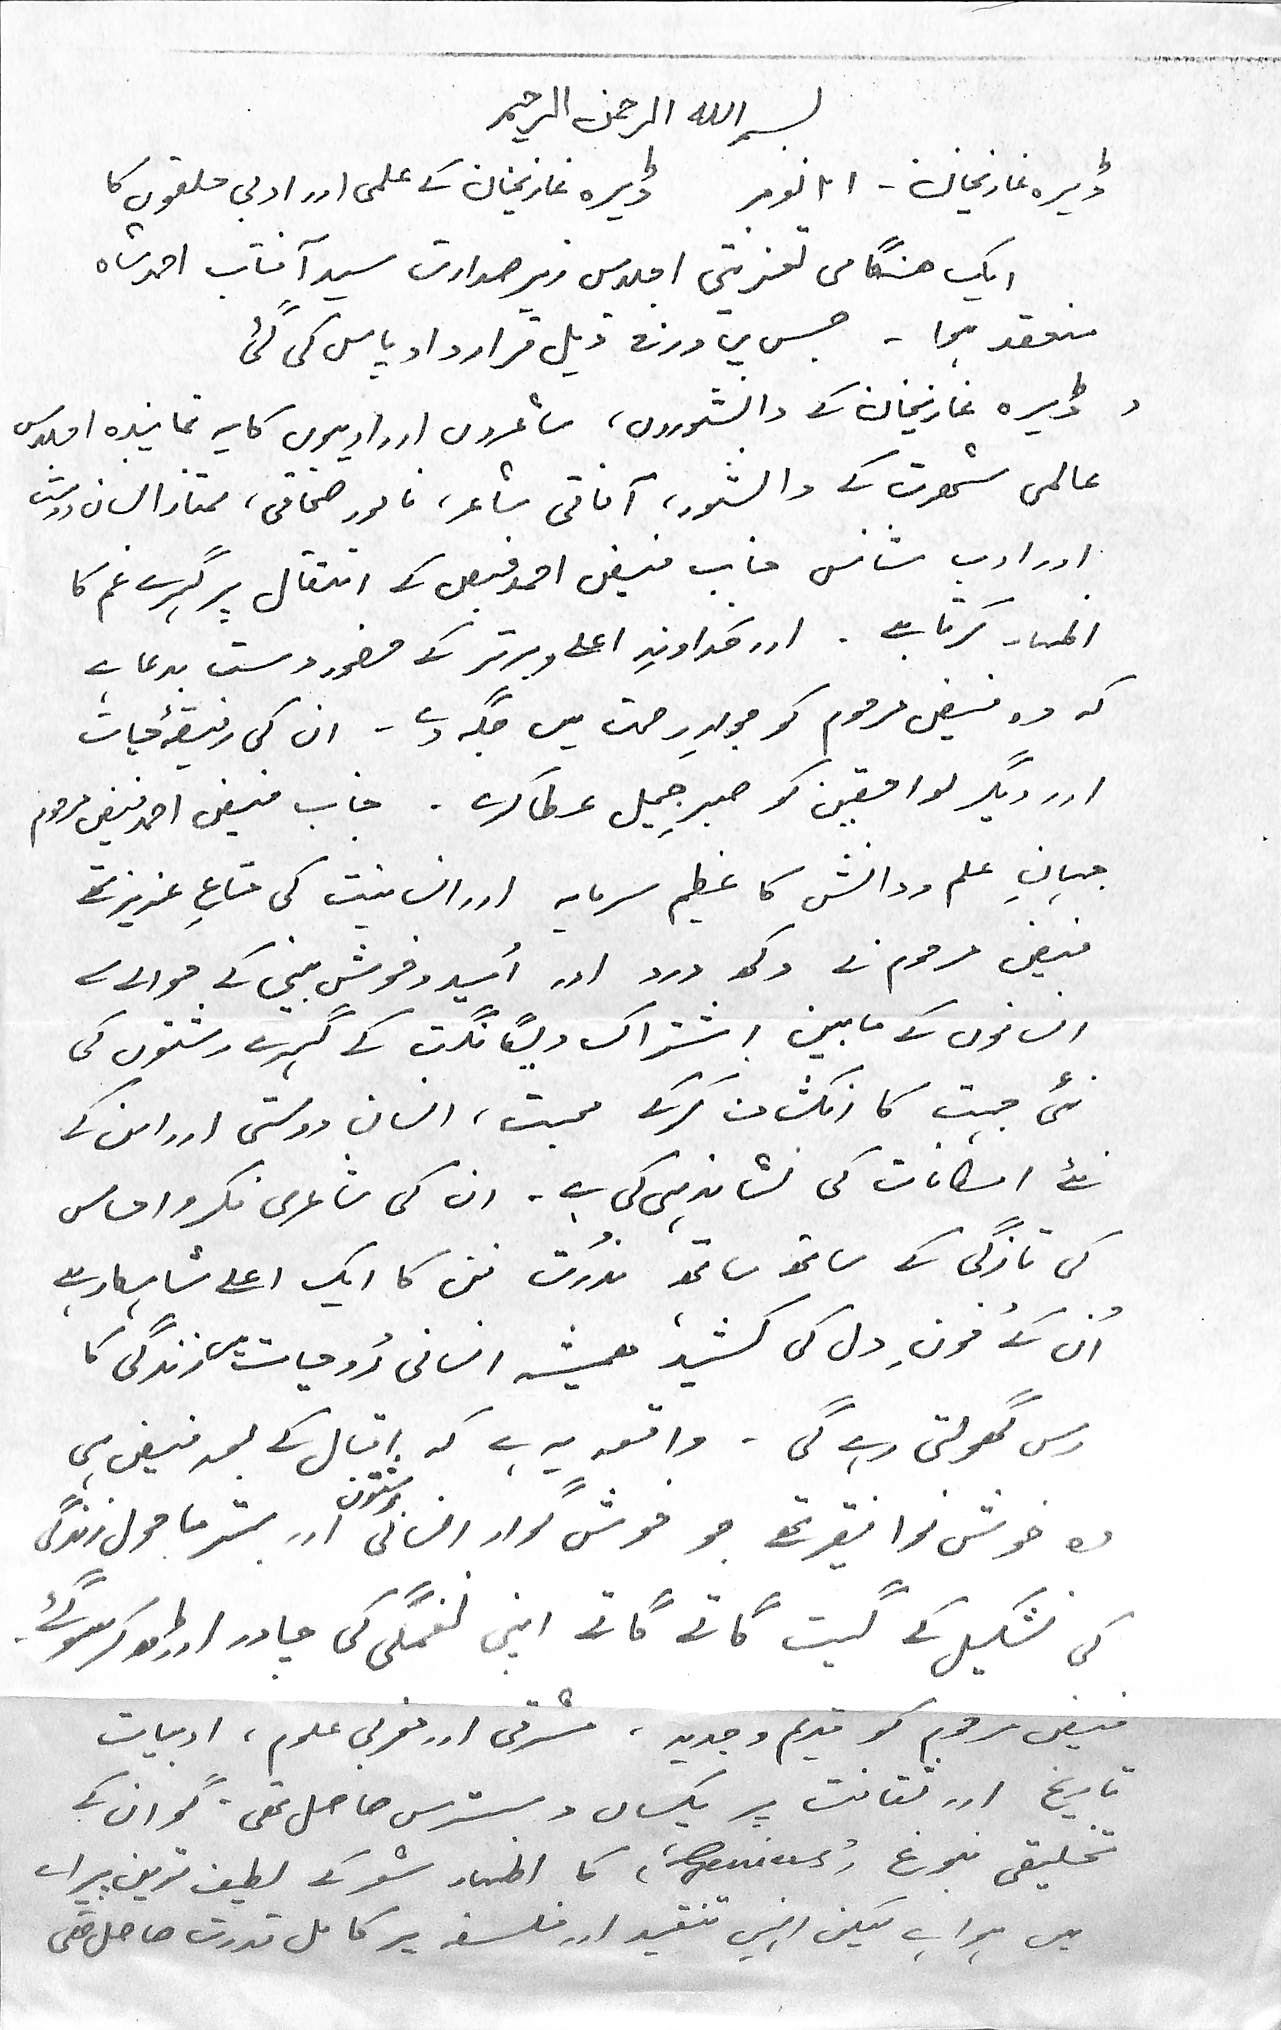 بسم اللہ الرحمن الرحیم
ڈیرہ غازیخان - ۲۱ نومبر ڈیرہ غازیخان کے علمی اور ادبی حلقوں کا
ایک ہنگامی تعزیتی اجلاس زیر صدارت سید آفتاب احمد شاہ
منعقد ہوا - جس میں درج ذیل قرارداد پاس کی گئی
ڈیرہ غازیخان کے دانشوروں، شاعروں اور ادیبوں کا یہ نمائندہ اجلاس
عالمی شہرت کے دانشور، آفاقی شاعر، نامور صحافی، ممتاز انسان دوست
اور ادب شناس جناب فیض احمد فیض کے انتقال پر گہرے غم کا
اظہار کرتا ہے - اور خداوندِ اعلے و برتر کے حضور دست بدعا ہے
کہ وہ فیض مرحوم کو جوارِ رحمت میں جگہ دے - ان کی رفیقۂ حیات
اور دیگر لواحقین کو صبرِ جمیل عطا کرے - جناب فیض احمد فیض مرحوم
جہانِ علم و دانش کا عظیم سرمایہ اور انسانیت کی متاعِ عزیز تھے
فیض مرحوم نے دکھ درد اور اُمید و خوش بینی کے حوالے سے
انسانوں کے مابین اشتراک و یگانگت کے گہرے رشتوں کی
نئی جہت کا انکشاف کر کے محبت، انسان دوستی اور امن کے
نئے امکانات کی نشاندہی کی ہے - ان کی شاعری فکر و احساس
کی تازگی کے ساتھ ساتھ نُدرت فن کا ایک اعلے شاہکار ہے
اُن کے خونِ دل کی کشید ہمیشہ انسانی رُوحیات میں زندگی کا
رس گھولتی رہے گی - واقعہ یہ ہے کہ اقبال کے بعد فیض ہی
وہ خوش نوا فقیر تھے جو خوش گوار انسانی رشتوں اور بہتر ماحول زندگی
کی تشکیل کے گیت گاتے گاتے اپنی نغمگی کی چادر اوڑھ کر سو گئے -
فیض مرحوم کو قدیم و جدید، مشرقی اور مغربی علوم، ادبیات
تاریخ اور ثقافت پر یکساں دسترس حاصل تھی - گو ان کے
تخلیقی نبوغ (Genius) کا اظہار شعر کے لطیف ترین پیرائے
میں ہوا ہے لیکن انہیں تنقید اور فلسفہ پر کامل قدرت حاصل تھی